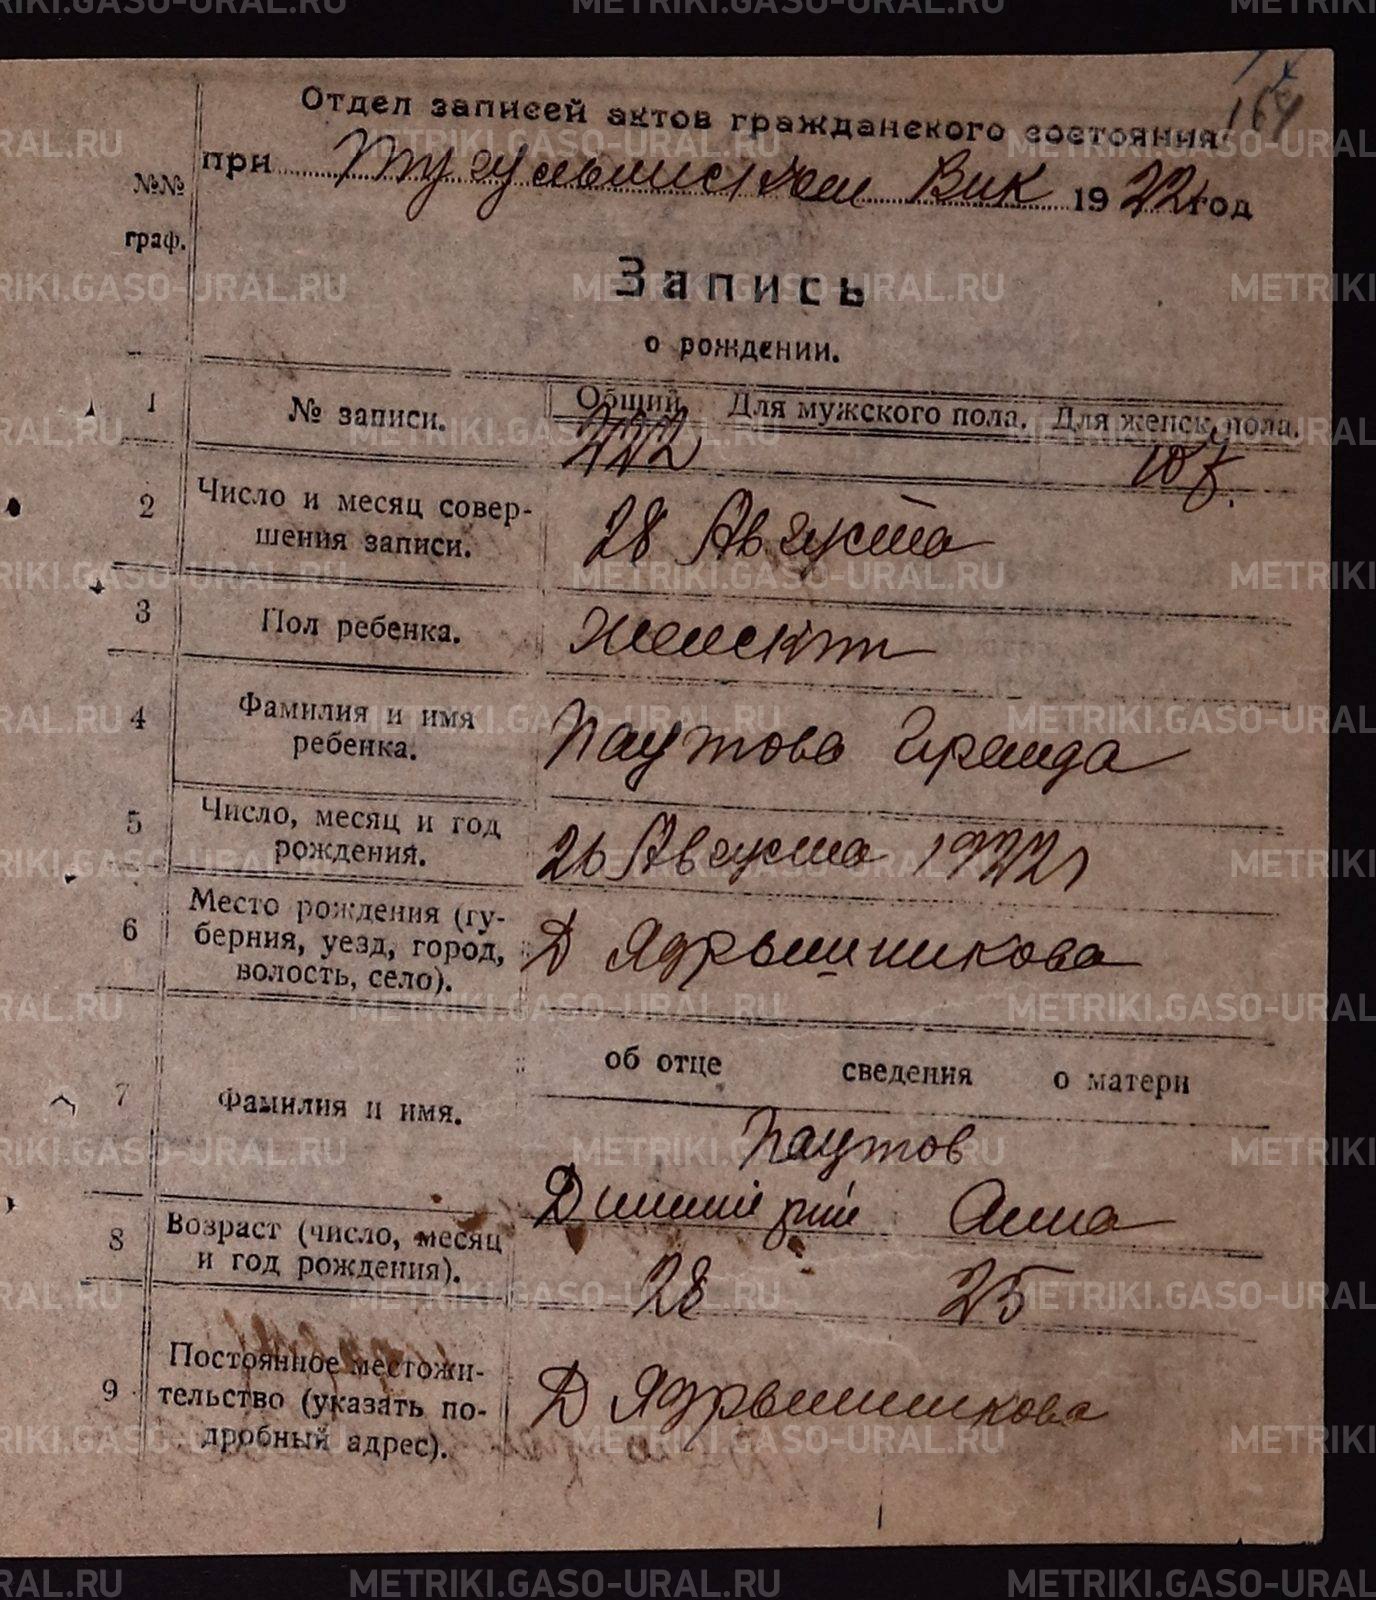 164
Отдел записей актов гражданского состояния
при Тугулымском Вик 1922 год
№№ граф.
Запись
о рождении.
1 № записи. Общий Для мужского пола. Для женск. пола.
222 107.
2 Число и месяц совер-
шения записи. 28 Августа
3 Пол ребенка. Женский
4 Фамилия и имя
ребенка. Паутова Ираида
5 Число, месяц и год
рождения. 26 Августа 1922 г
6 Место рождения (гу-
берния, уезд, город,
волость, село). Д Ядрышникова
об отце сведения о матери
7 Фамилия и имя.
Паутов
Димитрий Анна
8 Возраст (число, месяц
и год рождения). 28 25
9 Постоянное местожи-
тельство (указать по-
дробный адрес). Д Ядрышникова
METRIKI.GASO-URAL.RU